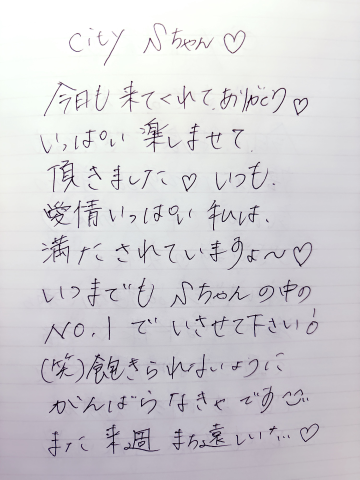 city Sちゃん♡
今日も来てくれて、ありがとう♡
いっぱい楽しませて
頂きました♡いつも、
愛情いっぱい私は、
満たされていますよ〜♡
いつまでもSちゃんの中の
NO.1でいさせて下さい!
(笑)飽きられないように
がんばらなきゃです
また来週まち遠しいな...♡